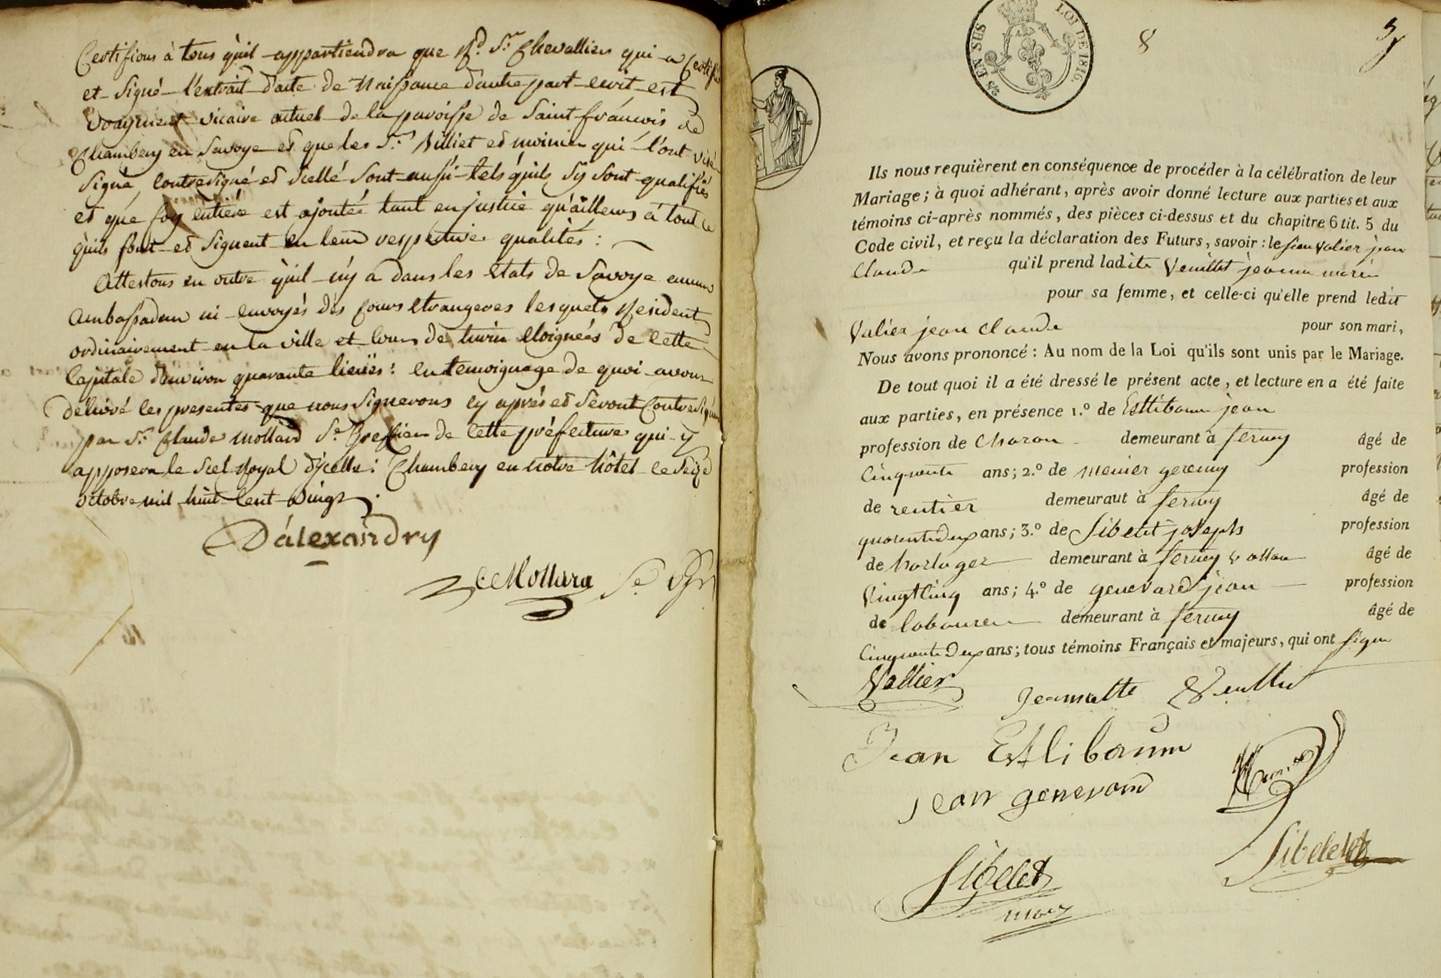 Certifions à tous qu'il appartiendra que Rd. Sr. Chevallier qui a certifié
et signé l'extrait d'acte de Naissance d'autre part ecrit est
vicaire actuel de la paroisse de Saint françois de
Chambery en Savoye et que les Srs. Villiet et qui l'ont visé
signé, contresigné et scellé sont aussi tels qu'ils s'y sont qualifiés
et que foy entière est ajoutée tant en justice qu'ailleurs à tout ce
qu'ils font et signent en leur respective qualités :
Attestons en outre qu'il n'y a dans les Etats de Savoye aucun
Ambassadeur ni envoyés des Cours Etrangeres lesquels Resident
ordinairement en la ville et Cour de turin Eloignées de cette
Capitale d'environ quarante lieües : en temoignage de quoi avons
Délivré les presentes que nous signerons cy après et seront Contresignées
par Sr. Claude Mollard Se. Greffier de cette préfecture qui y
apposera le Scel Royal d'icelle : Chambery en notre hôtel le seize
octobre mil huit cent vingt.
D'alexandry
Ce Mollard Se.
EN SUS LOI DE 1816.
8
Ils nous requièrent en conséquence de procéder à la célébration de leur
Mariage ; à quoi adhérant, après avoir donné lecture aux parties et aux
témoins ci-après nommés, des pièces ci-dessus et du chapitre 6 tit. 5 du
Code civil, et reçu la déclaration des Futurs, savoir : le sieur Valier jean
Claude qu'il prend ladite Veuillet jeanne marie
pour sa femme, et celle-ci qu'elle prend ledit
Valier jean Claude pour son mari,
Nous avons prononcé : Au nom de la Loi qu'ils sont unis par le Mariage.
De tout quoi il a été dressé le présent acte, et lecture en a été faite
aux parties, en présence 1.º de Esthibaum jean
profession de charon demeurant à ferney âgé de
Cinquante ans ; 2.º de menier geremy profession
de rentier demeuraut à ferney âgé de
quarentedeux ans ; 3.º de Sibelet joseph profession
de horloger demeurant à ferney voltaire âgé de
Vingtcinq ans ; 4.º de genevard jean profession
de laboureur demeurant à ferney âgé de
Cinquantedeux ans ; tous témoins Français et majeurs, qui ont signé
Vallier
Jeannette Veuillet
Jean Esthibaum
jean genevard
Sibelet
Sibelet
maire